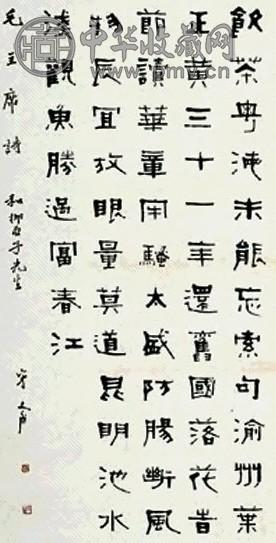 中华收藏网
飲茶粤海未能忘索句渝州葉
正黄三十一年還舊國落花旹
節讀華章牢騷太盛防腸斷風
物長宜放眼量莫道昆明池水
淺觀魚勝過富春江
毛主席詩 和柳亞子先生